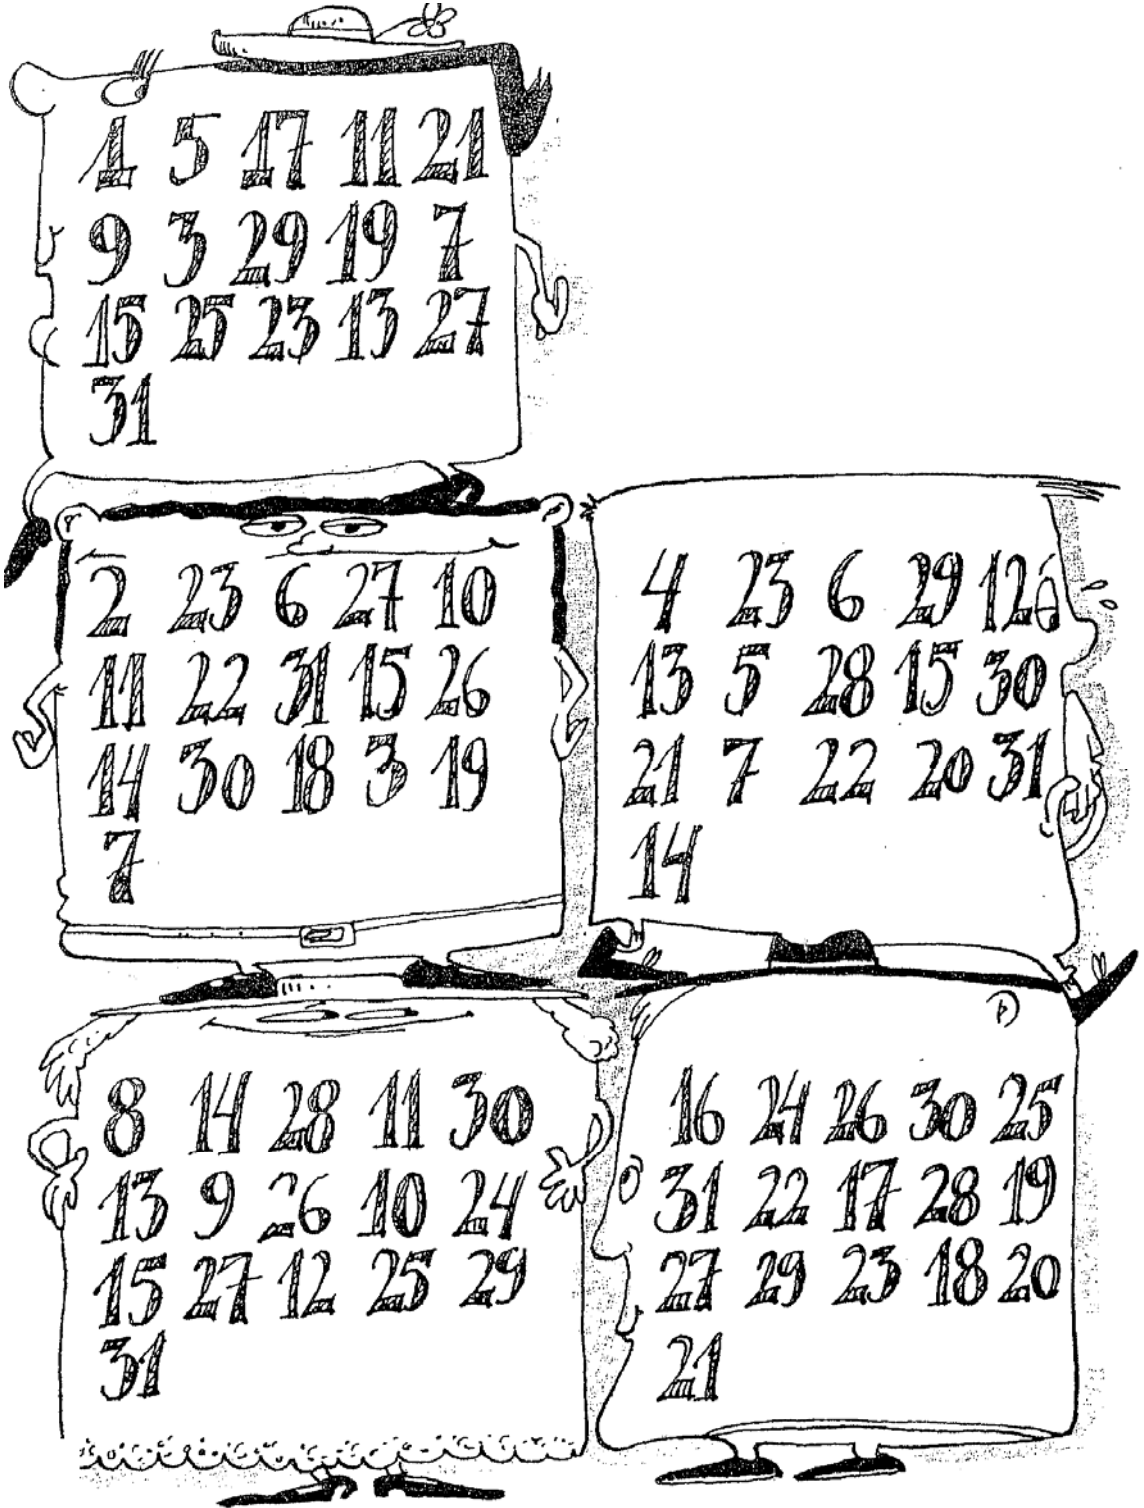 1 5 17 11 21
9 3 29 19 7
15 25 23 13 27
31
2 23 6 27 10
11 22 31 15 26
14 30 18 3 19
7
4 23 6 29 12
13 5 28 15 30
21 7 22 20 31
14
8 14 28 11 30
13 9 26 10 24
15 27 12 25 29
31
16 24 26 30 25
31 22 17 28 19
27 29 23 18 20
21